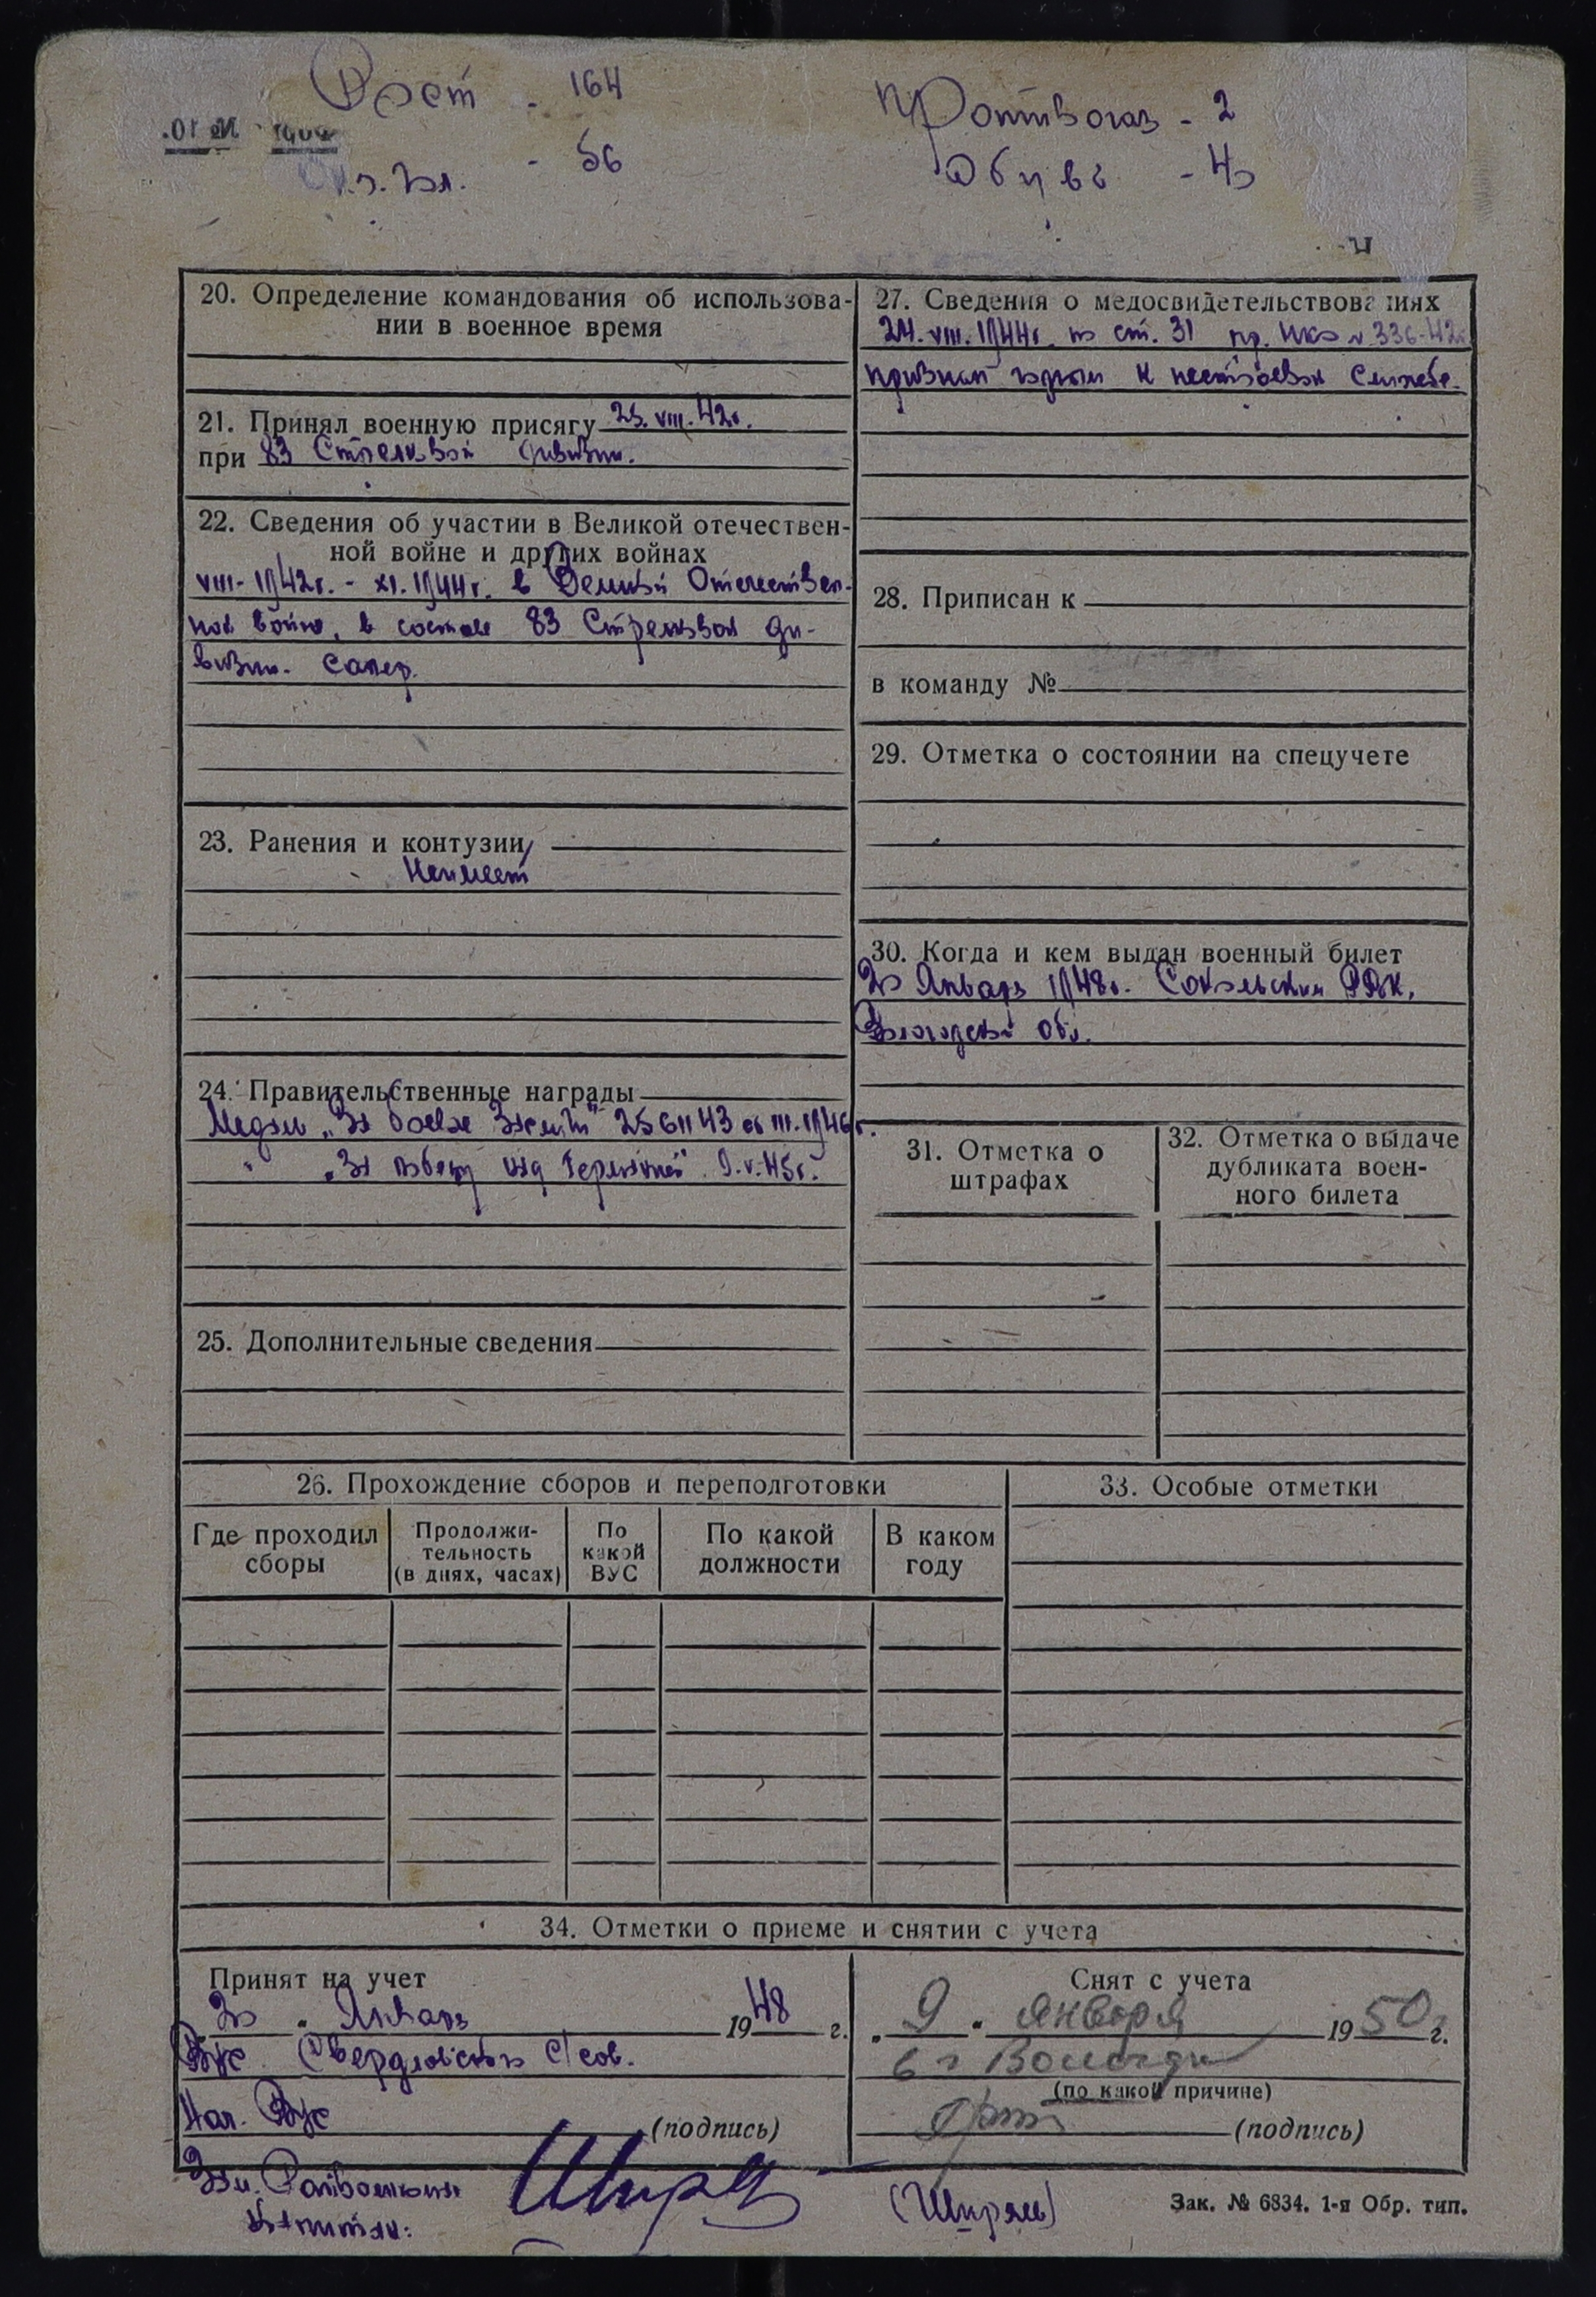 Рост - 164
Противогаз - 2
Ок. гол. - 56
Обувь - 40
20. Определение командования об использова-
нии в военное время
21. Принял военную присягу 25.VIII.42г.
при 83 Стрелковой дивизии.
22. Сведения об участии в Великой отечествен-
ной войне и других войнах
VIII-1942г. - XI.1944г. в Великой Отечествен-
ной войне, в составе 83 Стрелковой ди-
визии. Сапер.
23. Ранения и контузии
Неимеет
24. Правительственные награды
Медаль „За боевые заслуги" 2561143 от III.1946г.
" „За победу над Германией" 9.V.45г.
25. Дополнительные сведения
27. Сведения о медосвидетельствованиях
24.VIII.1944г. по ст. 31 пр. НКО № 336-42г.
признан годным к нестроевой службе.
28. Приписан к
в команду №
29. Отметка о состоянии на спецучете
30. Когда и кем выдан военный билет
20 Января 1948г. Сокольским РВК,
Вологодской обл.
31. Отметка о
штрафах
32. Отметка о выдаче
дубликата воен-
ного билета
26. Прохождение сборов и переподготовки
Где проходил
сборы
Продолжи-
тельность
(в днях, часах)
По
какой
ВУС
По какой
должности
В каком
году
33. Особые отметки
34. Отметки о приеме и снятии с учета
Принят на учет
20 " Января 1948 г.
ВУС Свердловского с/сов.
Нач. ВУС
(подпись)
Снят с учета
„ 9 " января 1950 г.
в г Вологду
(по какой причине)
(подпись)
Зам. Райвоенкома
Капитан:
(Ширяев)
Зак. № 6834. 1-я Обр. тип.